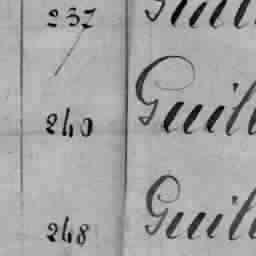 237 Guill
240 Guill
248 Guill